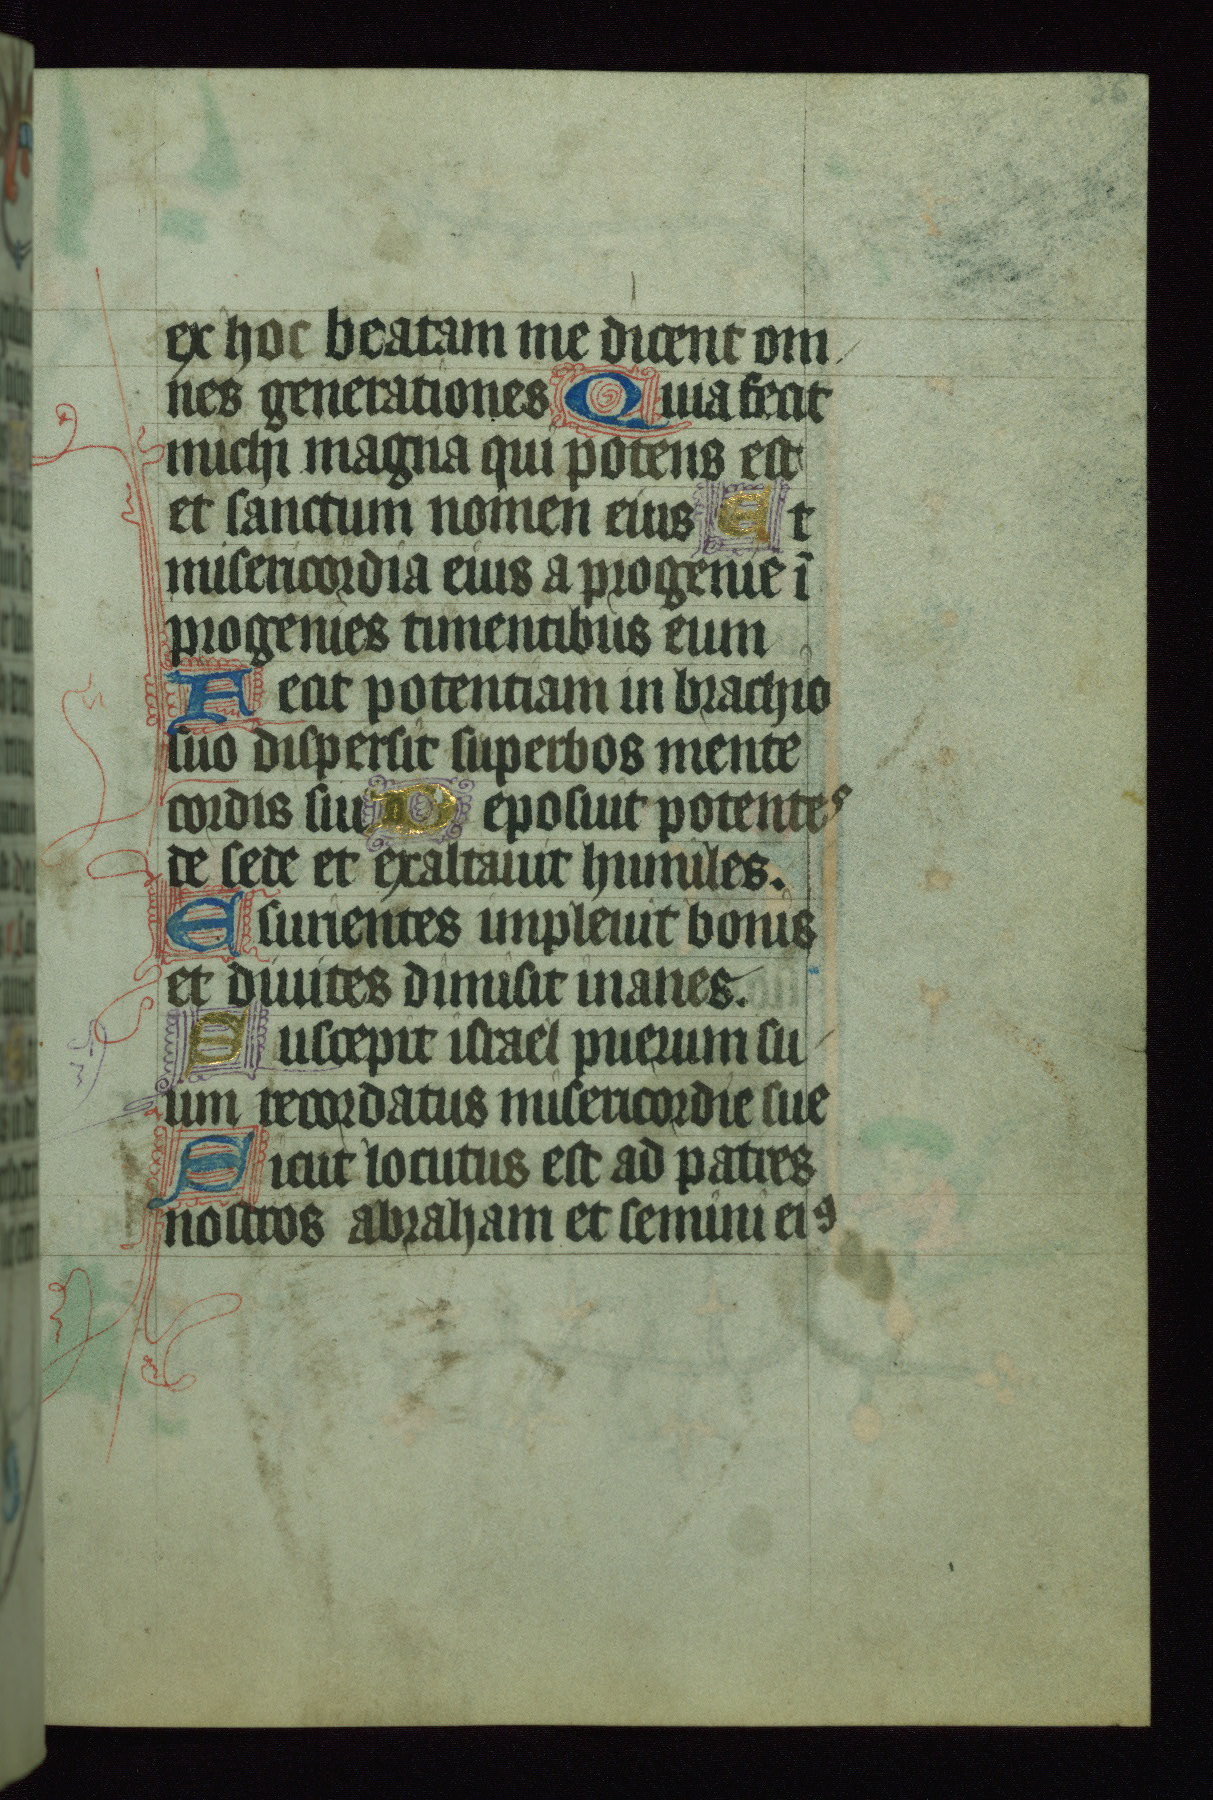 36
ex hoc beatam me dicent om
nes generationes Quia fecit
michi magna qui potens est
et sanctum nomen eius Et
misericordia eius a progenie ī
progenies timentibus eum
Fecit potentiam in brachio
suo dispersit superbos mente
cordis sui Deposuit potentes
de sede et exaltauit humiles.
Esurientes impleuit bonis
et diuites dimisit inanes.
Suscepit israel puerum su
um recordatus misericordie sue
Sicut locutus est ad patres
nostros abraham et semini eiꝰ